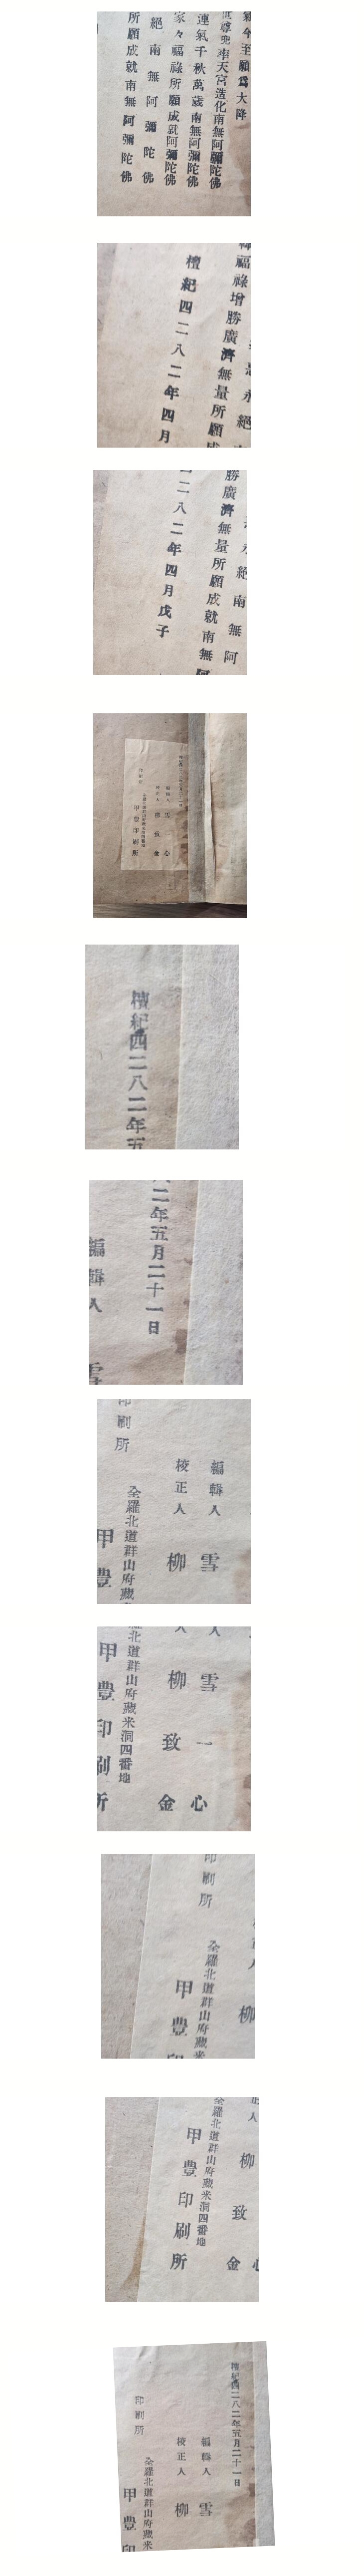 氣今至願爲大降
世尊兜率天宮造化南無阿彌陀佛
運氣千秋萬歲南無阿彌陀佛
家々福祿所願成就阿彌陀佛
絕南無阿彌陀佛
所願成就南無阿彌陀佛
福祿增勝廣濟無量所願成
檀紀四二八二年四月
勝廣濟無量所願成就南無阿
絕南無阿
二八二年四月戊子
編輯人 雪一心
校正人 柳致金
印刷所
甲豊印刷所
檀紀四二八二年五
二年五月二十一日
編輯人 雪
編輯人 雪
校正人 柳
印刷所
全羅北道群山府藏
甲豊
人 雪一心
人 柳致金
北道群山府藏米洞四番地
甲豊印刷所
人 柳
印刷所
全羅北道群山府藏米
甲豊印
人 柳致金
心
全羅北道群山府藏米洞四番地
甲豊印刷所
檀紀四二八二年五月二十一日
編輯人 雪
校正人 柳
印刷所
全羅北道群山府藏米
甲豊印